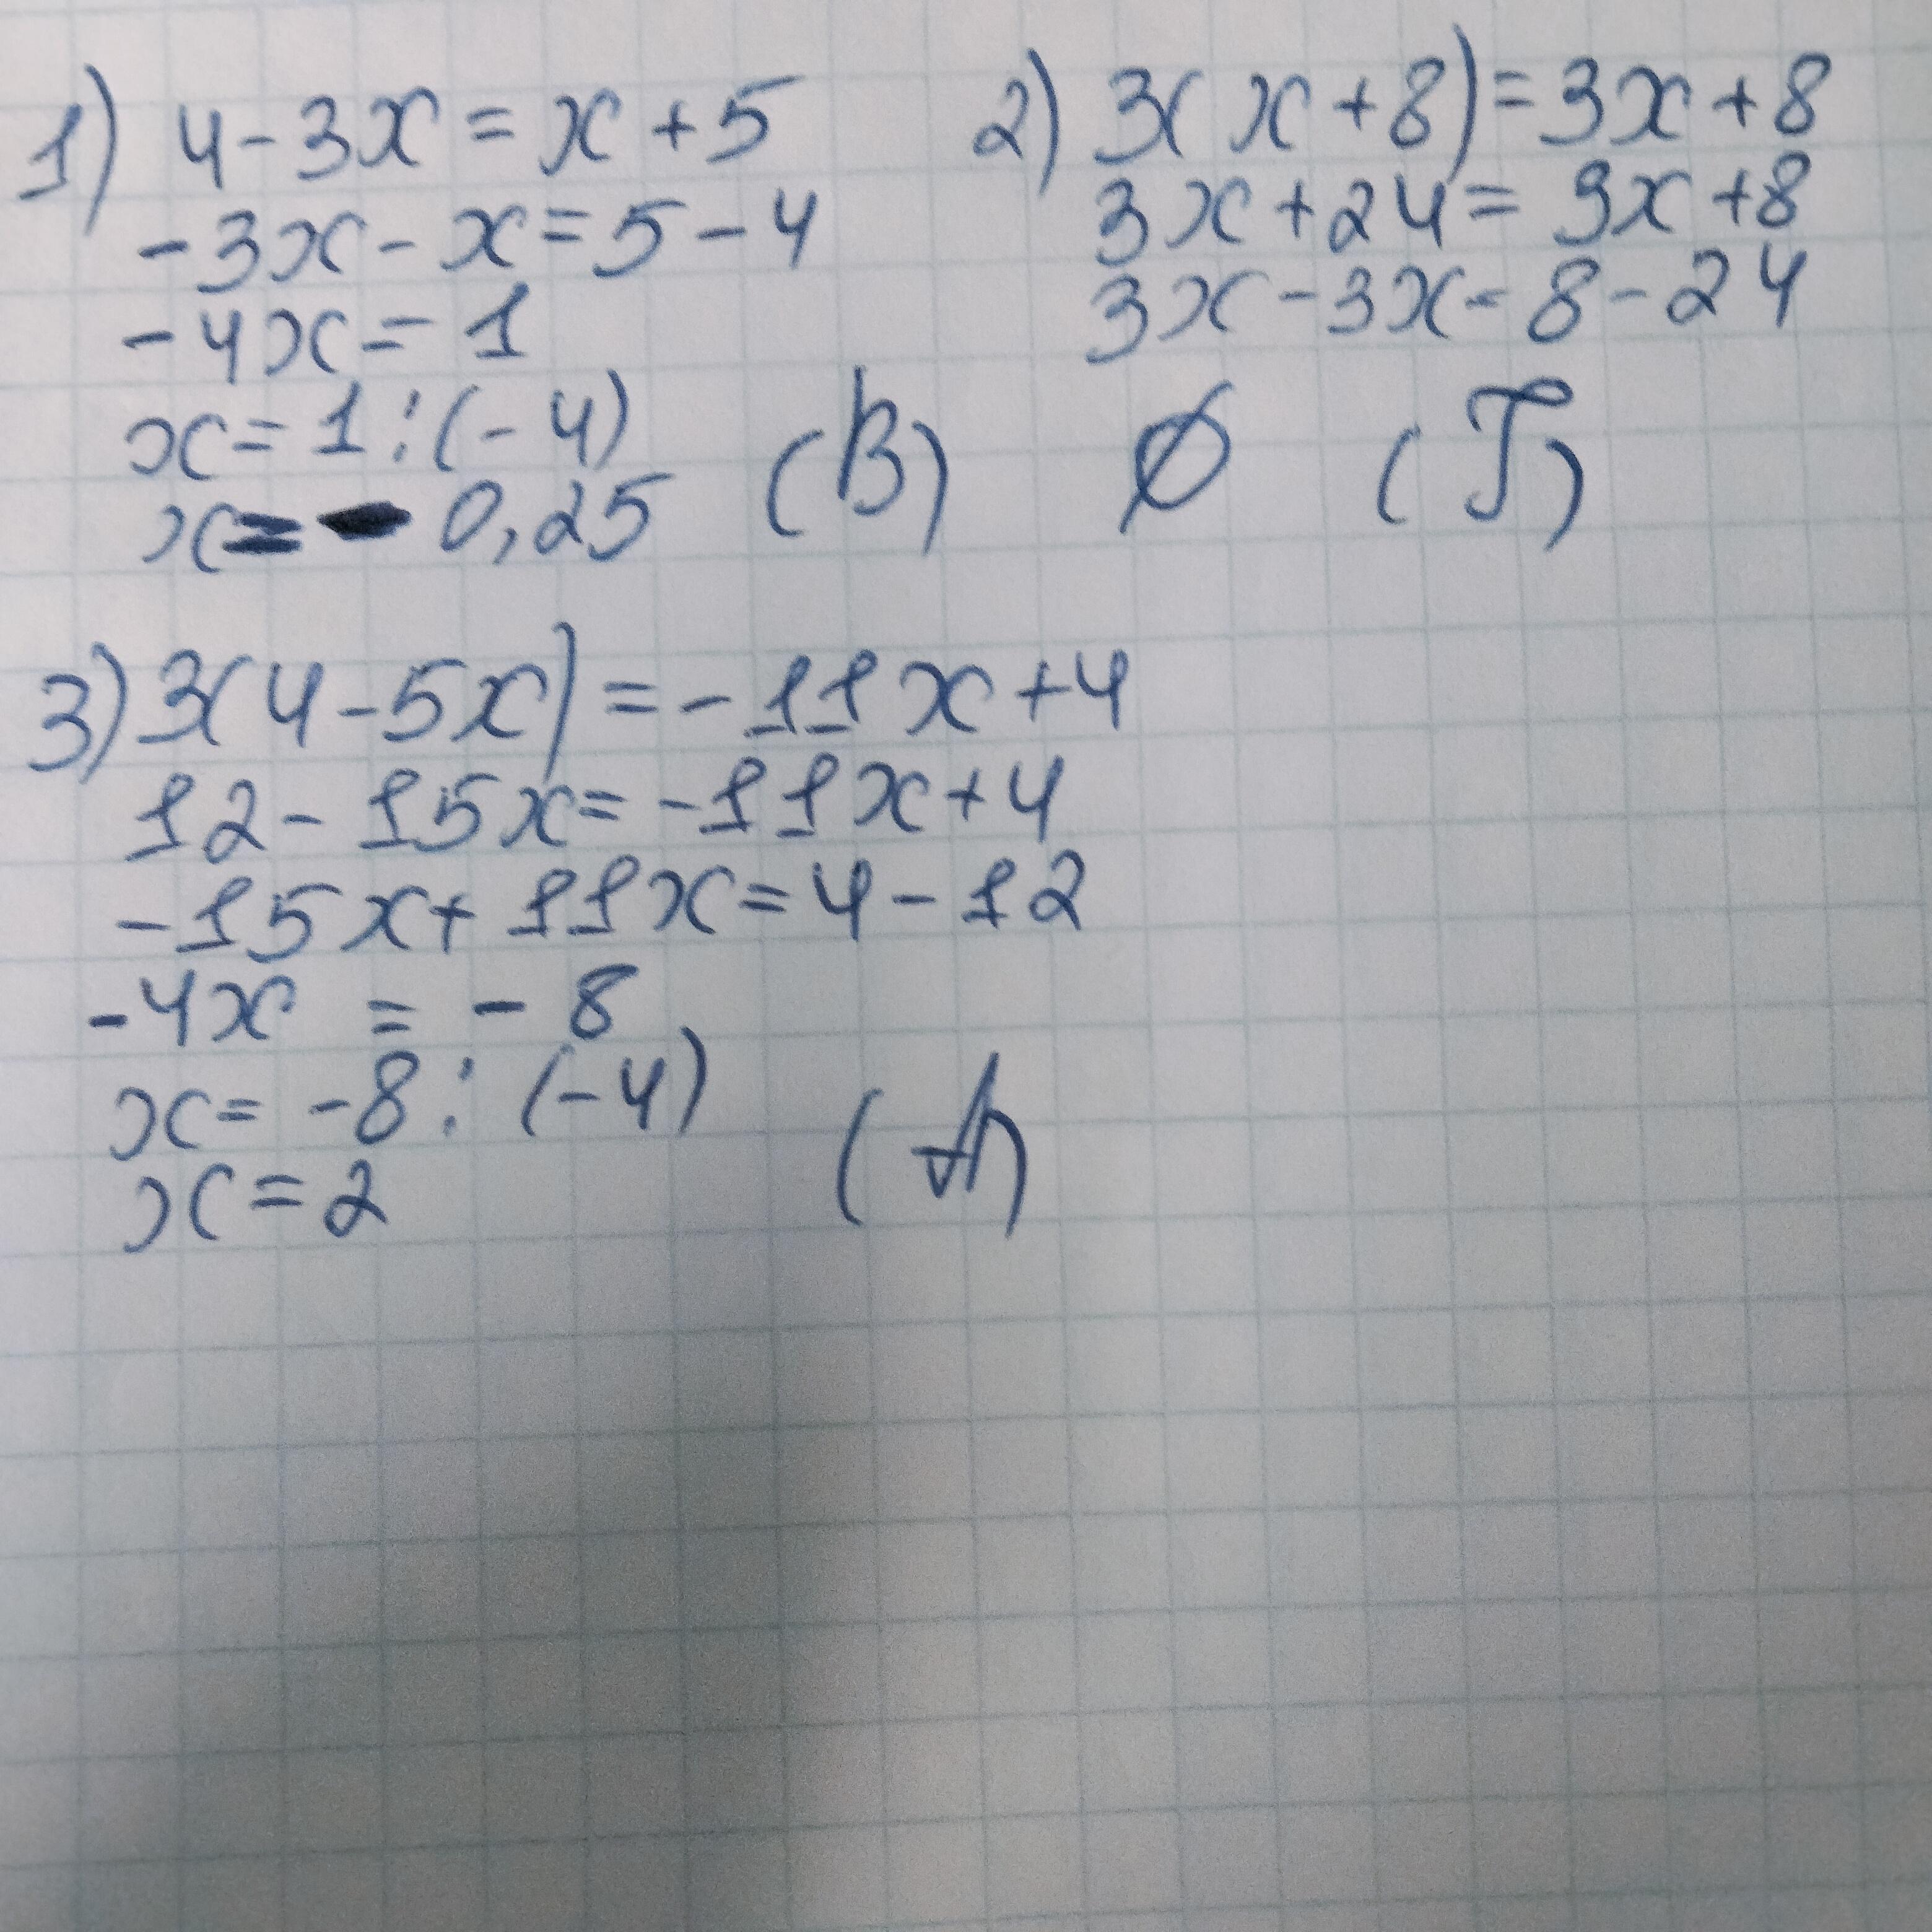 1) 4-3x=x+5
-3x-x=5-4
-4x=1
x=1:(-4)
x=-0,25 (В)
2) 3(x+8)=3x+8
3x+24=3x+8
3x-3x=8-24
Ø (Г)
3) 3(4-5x)=-11x+4
12-15x=-11x+4
-15x+11x=4-12
-4x=-8
x=-8:(-4)
x=2 (А)